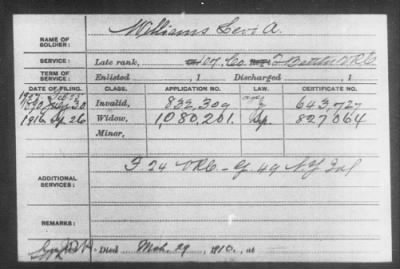 NAME OF SOLDIER: Williams Levi A.
SERVICE: Late rank, Co. 2 Battn V.R.C.
TERM OF SERVICE: Enlisted , 1 Discharged , 1
DATE OF FILING. CLASS. APPLICATION NO. LAW. CERTIFICATE NO.
1890 July 30 Invalid, 832,309 643,727
1916 Sp. 26 Widow, 1,080,201 Sp. 827,064
Minor,
ADDITIONAL SERVICES: F. 24 V.R.C. - G. 49 N.Y. Inf
REMARKS:
Died Mch. 29, 1910, at